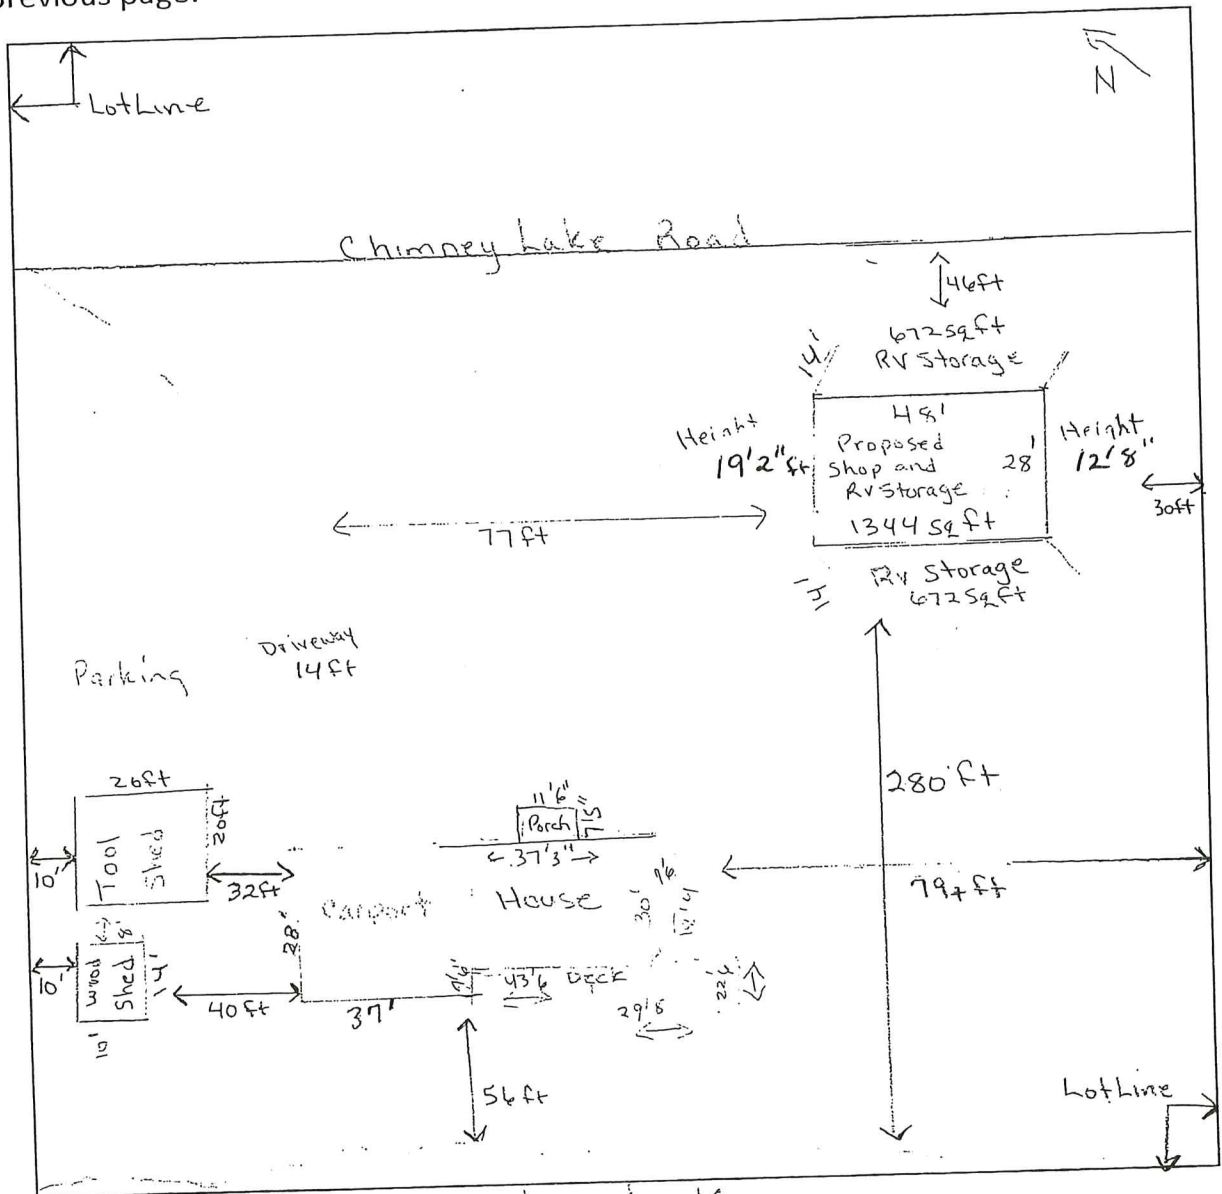 previous page.
N
Lot Line
Chimney Lake Road
46ft
672 sq ft
RV Storage
14'
48'
Height
19'2" ft
Proposed
Shop and
RV Storage
28'
Height
12'8"
30ft
1344 sq ft
77 ft
RV Storage
672 sq ft
14'
Driveway
14 ft
Parking
280 ft
20ft
20ft
Tool
Shed
10'
32ft
11'6"
Porch
7'5"
37'3"
Carport
House
28'
30'
79+ ft
8'
wood
Shed
14'
10'
10'
40ft
37'
7'6"
43'6
Deck
29'8
22'
56 ft
Lot Line